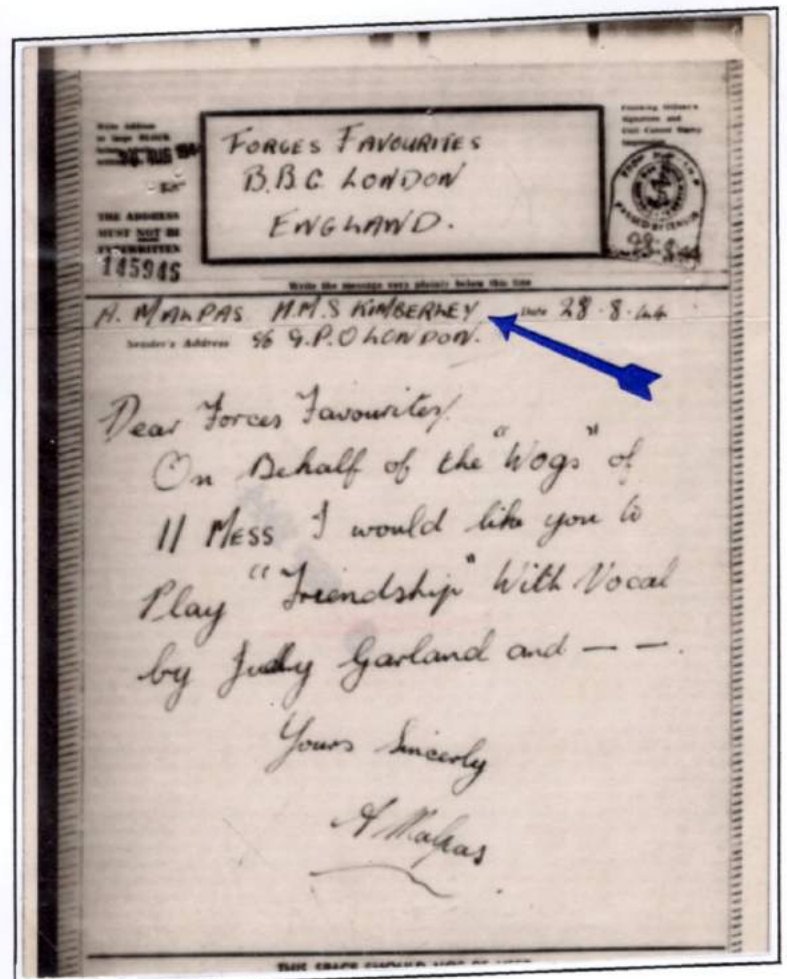 Write Address
in large BLOCK
THE ADDRESS
MUST NOT BE
TYPEWRITTEN
145945
FORCES FAVOURITES
B.B.C. LONDON
ENGLAND.
PASSED BY CENSOR
Write the message very plainly below this line
A. MALPAS H.M.S KIMBERLEY Date 28.8.44
Sender's Address % G.P.O LONDON.
Dear Forces Favourites/
On Behalf of the "Wogs" of
11 MESS I would like you to
Play "Friendship" With Vocal
by Judy Garland and — —.
Yours Sincerly
A Malpas
THIS SPACE SHOULD NOT BE USED